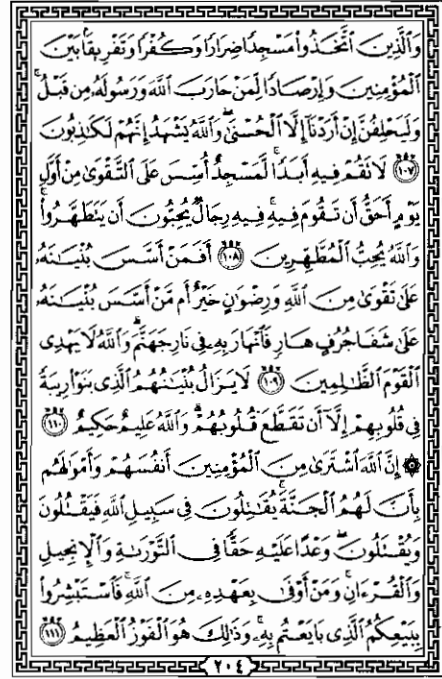 وَالَّذِينَ اتَّخَذُوا مَسْجِدًا ضِرَارًا وَكُفْرًا وَتَفْرِيقًا بَيْنَ
الْمُؤْمِنِينَ وَإِرْصَادًا لِّمَنْ حَارَبَ اللَّهَ وَرَسُولَهُ مِن قَبْلُ ۚ
وَلَيَحْلِفُنَّ إِنْ أَرَدْنَا إِلَّا الْحُسْنَىٰ ۖ وَاللَّهُ يَشْهَدُ إِنَّهُمْ لَكَاذِبُونَ
﴿١٠٧﴾ لَا تَقُمْ فِيهِ أَبَدًا ۚ لَّمَسْجِدٌ أُسِّسَ عَلَى التَّقْوَىٰ مِنْ أَوَّلِ
يَوْمٍ أَحَقُّ أَن تَقُومَ فِيهِ ۚ فِيهِ رِجَالٌ يُحِبُّونَ أَن يَتَطَهَّرُوا ۚ
وَاللَّهُ يُحِبُّ الْمُطَّهِّرِينَ ﴿١٠٨﴾ أَفَمَنْ أَسَّسَ بُنْيَانَهُ
عَلَىٰ تَقْوَىٰ مِنَ اللَّهِ وَرِضْوَانٍ خَيْرٌ أَم مَّنْ أَسَّسَ بُنْيَانَهُ
عَلَىٰ شَفَا جُرُفٍ هَارٍ فَانْهَارَ بِهِ فِي نَارِ جَهَنَّمَ ۗ وَاللَّهُ لَا يَهْدِي
الْقَوْمَ الظَّالِمِينَ ﴿١٠٩﴾ لَا يَزَالُ بُنْيَانُهُمُ الَّذِي بَنَوْا رِيبَةً
فِي قُلُوبِهِمْ إِلَّا أَن تَقَطَّعَ قُلُوبُهُمْ ۗ وَاللَّهُ عَلِيمٌ حَكِيمٌ ﴿١١٠﴾
۞ إِنَّ اللَّهَ اشْتَرَىٰ مِنَ الْمُؤْمِنِينَ أَنفُسَهُمْ وَأَمْوَالَهُم
بِأَنَّ لَهُمُ الْجَنَّةَ ۚ يُقَاتِلُونَ فِي سَبِيلِ اللَّهِ فَيَقْتُلُونَ
وَيُقْتَلُونَ ۖ وَعْدًا عَلَيْهِ حَقًّا فِي التَّوْرَاةِ وَالْإِنجِيلِ
وَالْقُرْآنِ ۚ وَمَنْ أَوْفَىٰ بِعَهْدِهِ مِنَ اللَّهِ ۚ فَاسْتَبْشِرُوا
بِبَيْعِكُمُ الَّذِي بَايَعْتُم بِهِ ۚ وَذَٰلِكَ هُوَ الْفَوْزُ الْعَظِيمُ ﴿١١١﴾
٢٠٤